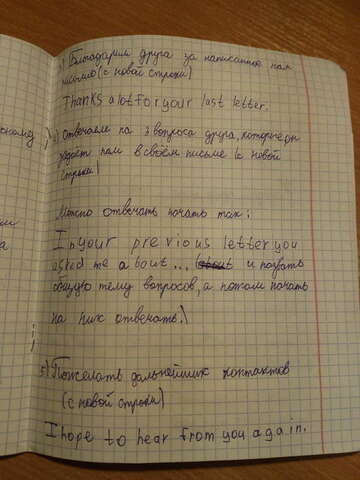 ) Благодарим друга за написанное нам
письмо (с новой строки)
Thanks a lot for your last letter.
) Отвечаем на 3 вопроса друга, которые он
задаёт нам в своём письме (с новой
строки)
Можно отвечать начать так:
In your previous letter you
asked me about... и назвать
общую тему вопросов, а потом начать
на них отвечать.)
5) Пожелать дальнейших контактов
(с новой строки)
I hope to hear from you again.